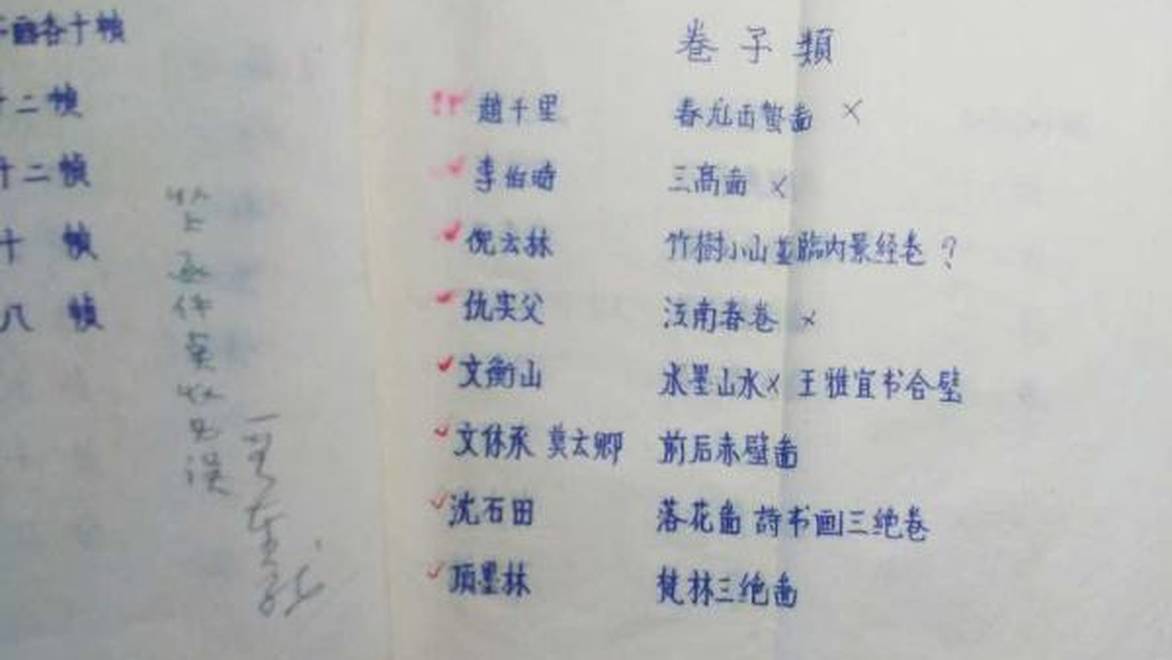 各十幀
十二幀
十二幀
十 幀
八 幀
卷子類
趙千里 春龙西蟹啚 ×
李伯時 三高啚 ×
倪云林 竹樹小山並臨内景経卷 ?
仇实父 江南春卷 ×
文衡山 水墨山水× 王雅宜书合壁
文休承 莫云卿 前后赤壁啚
沈石田 落花啚 詩书画三绝卷
項墨林 梵林三绝啚